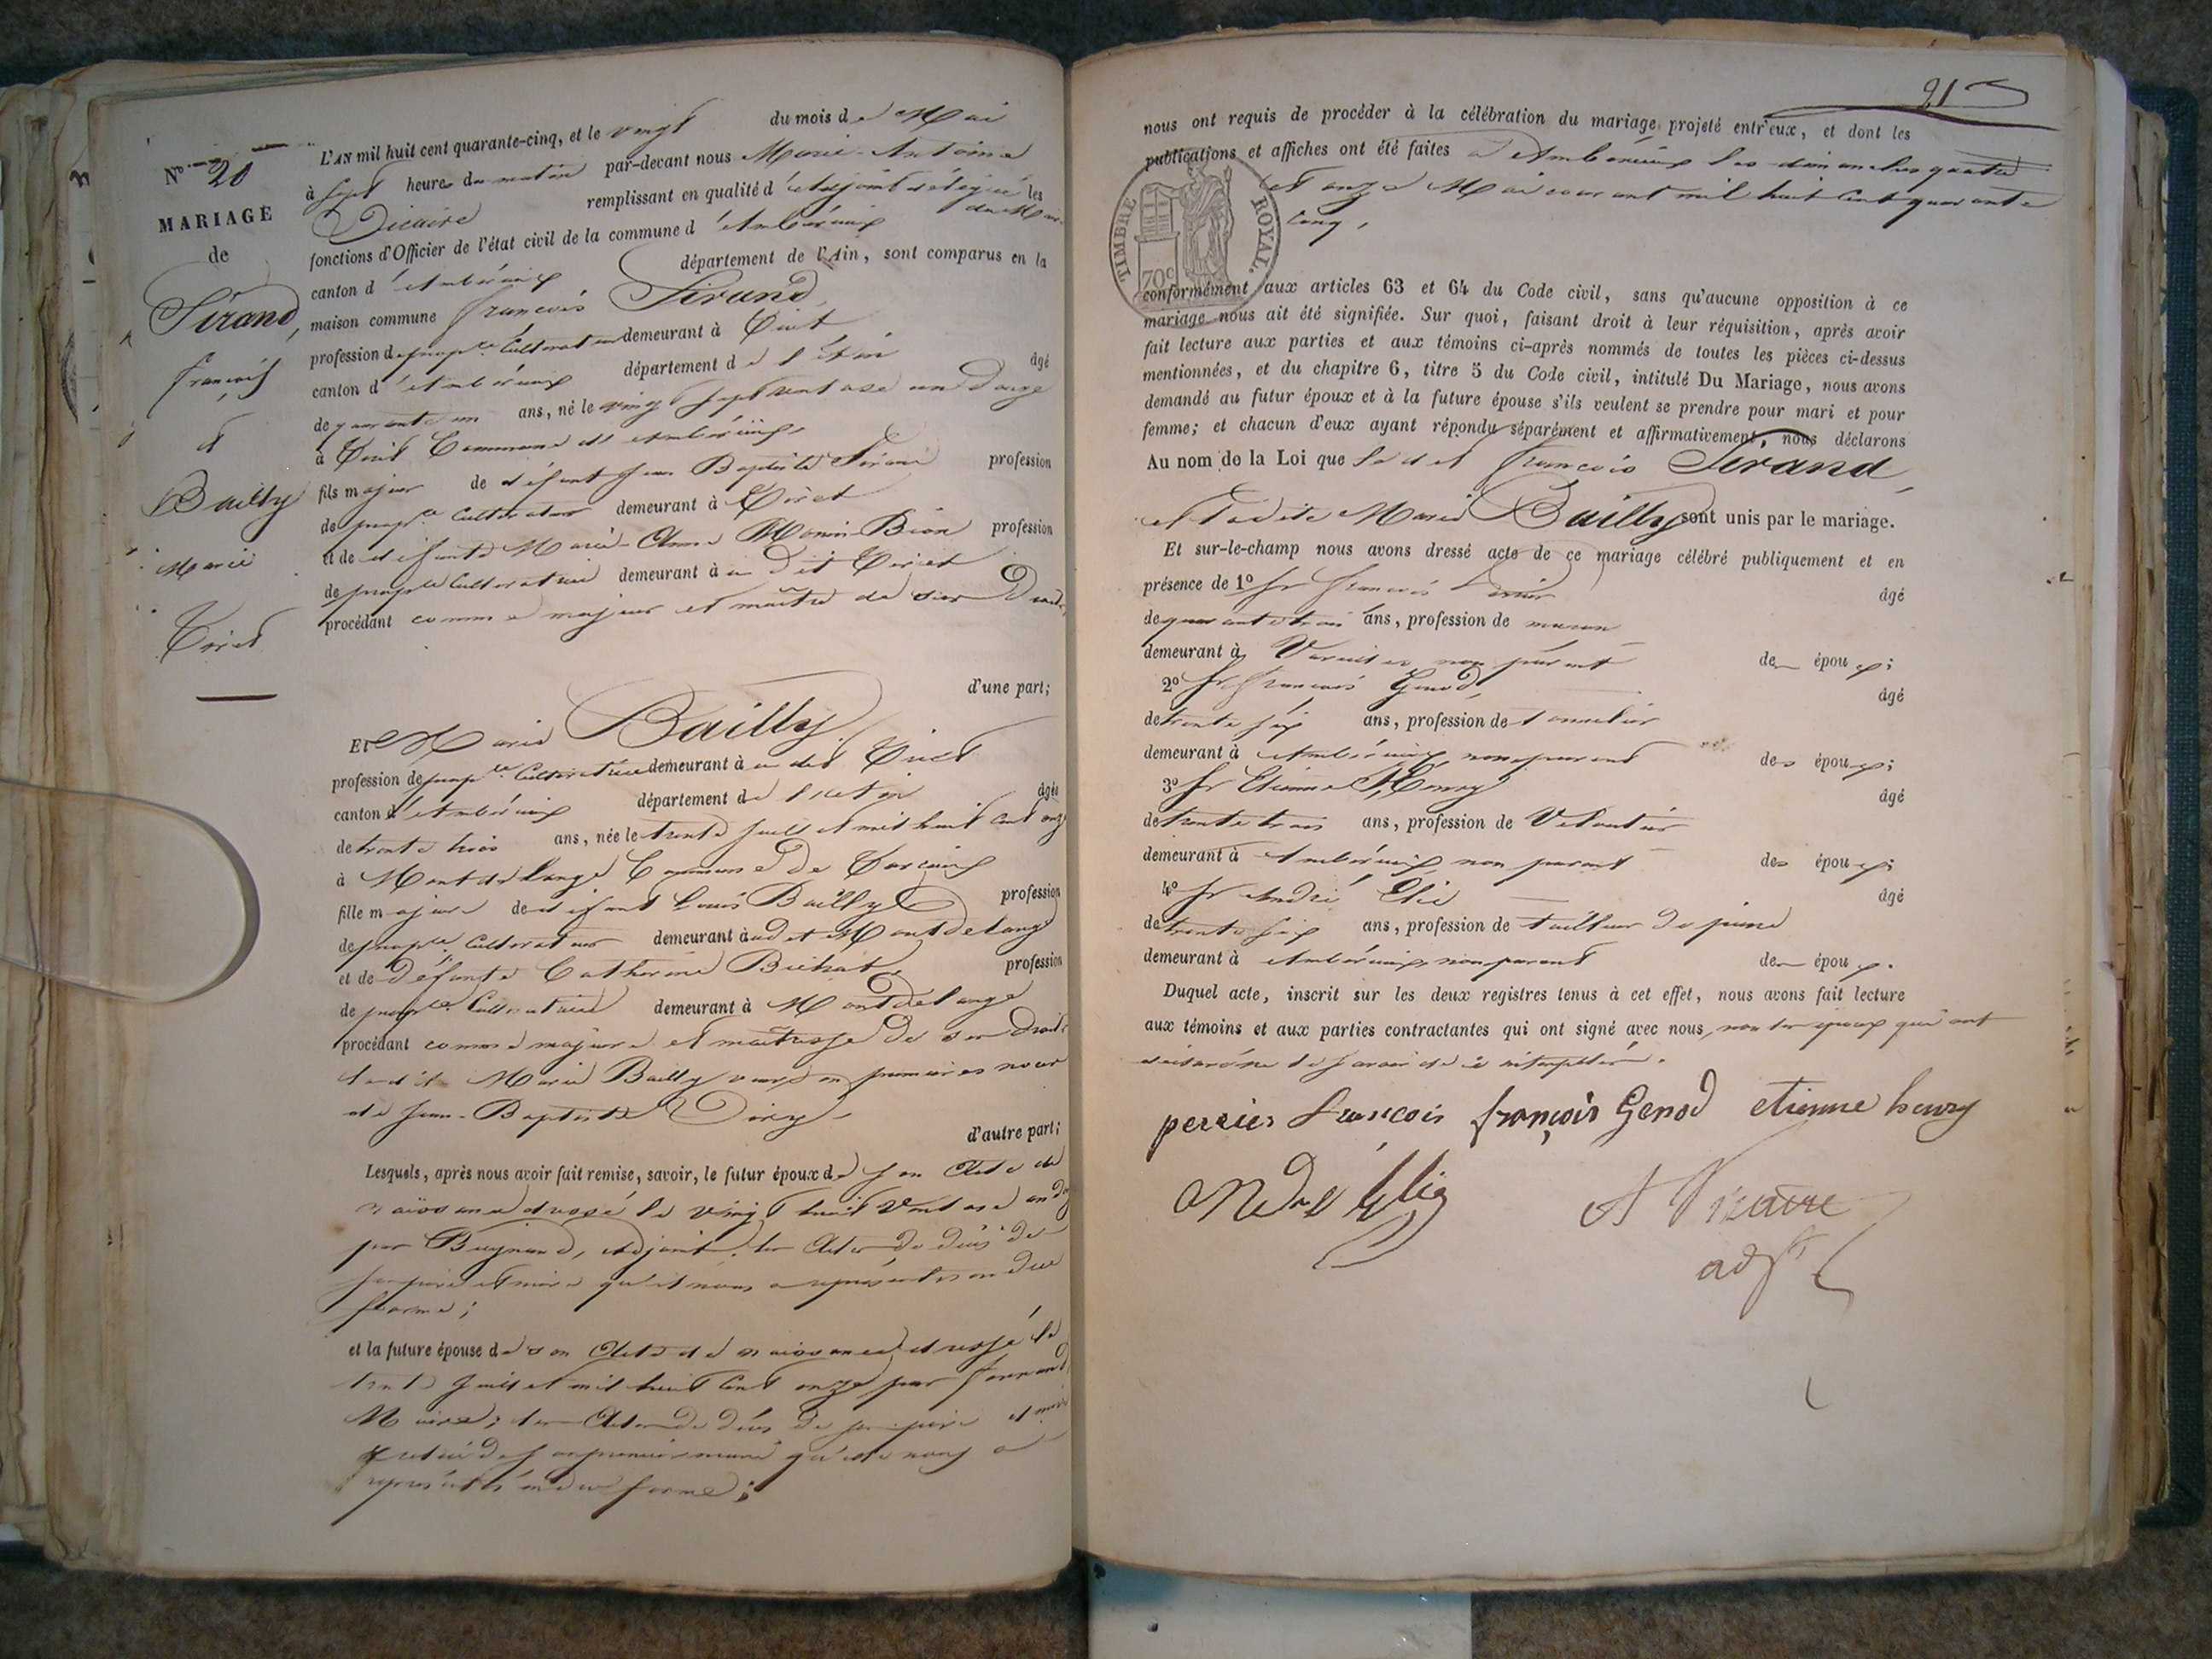 N.º 20
MARIAGE
de
Sirand,
françois
et
Bailly
Marie
Tiret
L'AN mil huit cent quarante-cinq, et le vingt du mois de Mai
à sept heures du matin par-devant nous Marie-Antoine
Dicaire remplissant en qualité d'adjoint délégué du Maire les
fonctions d'Officier de l'état civil de la commune d'Ambérieux
canton d'Ambérieux département de l'Ain, sont comparus en la
maison commune françois Sirand,
profession de prop.re Cultivateur demeurant à Tiret
canton d'Ambérieux département de l'Ain âgé
de quarante un ans, né le vingt sept ventose an douze
à Tiret Commune d'Ambérieux,
fils majeur de défunt Jean Baptiste Sirand profession
de prop.re Cultivateur demeurant à Tiret
et de défunte Marie-Anne Monin-Bion profession
de prop.re Cultivatrice demeurant à au dit Tiret
procédant comme majeur et maître de ses Droits,
d'une part;
Et Marie Bailly
profession de prop.re Cultivatrice demeurant à au dit Tiret
canton d'Ambérieux département de l'Ain âgée
de trente trois ans, née le trente Juillet mil huit cent onze
à Montdelange Commune de Torcieux
fille majeure de défunt Louis Bailly profession
de prop.re Cultivateur demeurant à audit Montdelange
et de Défunte Catherine Bichat, profession
de prop.re Cultivatrice demeurant à Montdelange
procédant comme majeure et maîtresse de ses Droits
ladite Marie Bailly veuve en premières noces
de Jean-Baptiste Diry,
d'autre part;
Lesquels, après nous avoir fait remise, savoir, le futur époux de son Acte de
naissance dressé le vingt huit Ventose an douze
par Buynand, adjoint, les Actes de décès de
ses père et mère qu'il nous a représentés en due
forme;
et la future épouse de son Acte de naissance dressé le
trente Juillet mil huit Cent onze par
Maire; les Actes de décès de ses père et mère
et celui de son premier mari qu'elle nous a
représentés en due forme;
21
nous ont requis de procéder à la célébration du mariage projeté entr'eux, et dont les
publications et affiches ont été faites à Ambérieux les dimanches quatre
et onze Mai courant mil huit Cent quarante
Cinq,
TIMBRE ROYAL.
70c
conformément aux articles 63 et 64 du Code civil, sans qu'aucune opposition à ce
mariage nous ait été signifiée. Sur quoi, faisant droit à leur réquisition, après avoir
fait lecture aux parties et aux témoins ci-après nommés de toutes les pièces ci-dessus
mentionnées, et du chapitre 6, titre 5 du Code civil, intitulé Du Mariage, nous avons
demandé au futur époux et à la future épouse s'ils veulent se prendre pour mari et pour
femme; et chacun d'eux ayant répondu séparément et affirmativement, nous déclarons
Au nom de la Loi que ledit françois Sirand,
et ladite Marie Bailly sont unis par le mariage.
Et sur-le-champ nous avons dressé acte de ce mariage célébré publiquement et en
présence de 1º Sr françois Perrier âgé
de quarante trois ans, profession de maçon
demeurant à Vareilles, non parent des époux;
2º Sr françois Genod, âgé
de trente six ans, profession de tonnelier
demeurant à Ambérieux, non parent des époux;
3º Sr Etienne Henry âgé
de trente trois ans, profession de
demeurant à Ambérieux, non parent des époux;
4º Sr André Elie âgé
de trente six ans, profession de tailleur de pierre
demeurant à Ambérieux, non parent des époux.
Duquel acte, inscrit sur les deux registres tenus à cet effet, nous avons fait lecture
aux témoins et aux parties contractantes qui ont signé avec nous, non les époux qui ont
déclaré ne le savoir de ce interpellés.
perrier francois françois Genod etienne henry
andré Elie A Dicaire
adjt